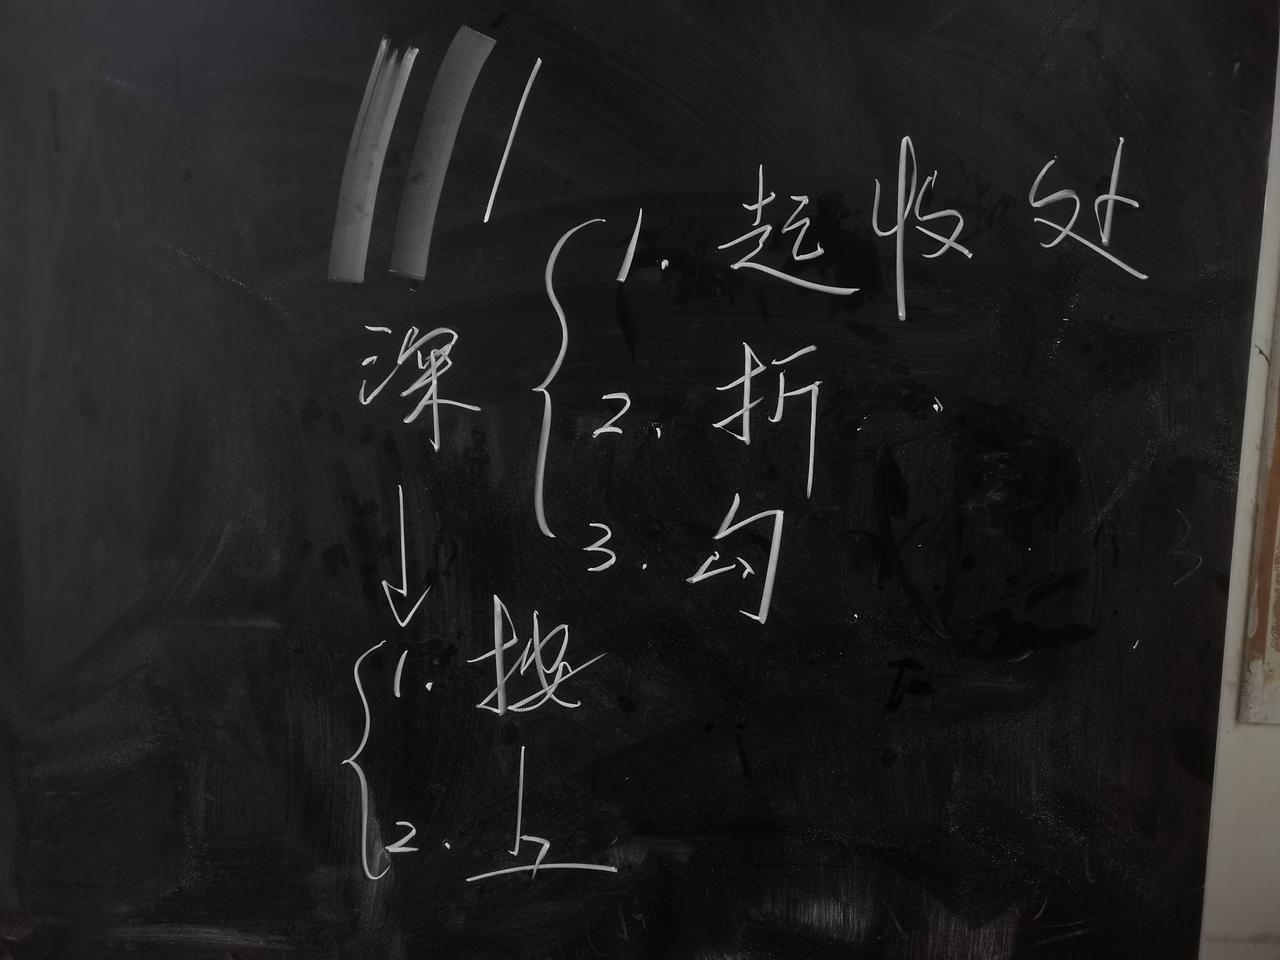 1. 起收处
深
2. 折
3. 勾
↓
1. 按
2.